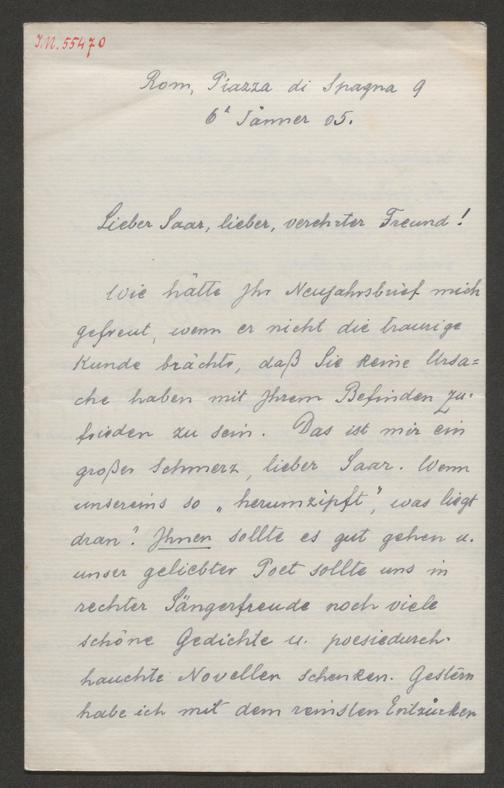 J.N. 55470
Rom, Piazza di Spagna 9
6ª Jänner 05.
Lieber Saar, lieber, verehrter Freund!
Wie hätte Ihr Neujahrsbrief mich
gefreut, wenn er nicht die traurige
Kunde brächte, daß Sie keine Ursa=
che haben mit Ihrem Befinden zu-
frieden zu sein. Das ist mir ein
großer Schmerz, lieber Saar. Wenn
unsereins so „herumzipft", was liegt
dran? Ihnen sollte es gut gehen u.
unser geliebter Poet sollte uns in
rechter Sängerfreude noch viele
schöne Gedichte u. poesiedurch-
hauchte Novellen schenken. Gestern
habe ich mit dem reinsten Entzücken